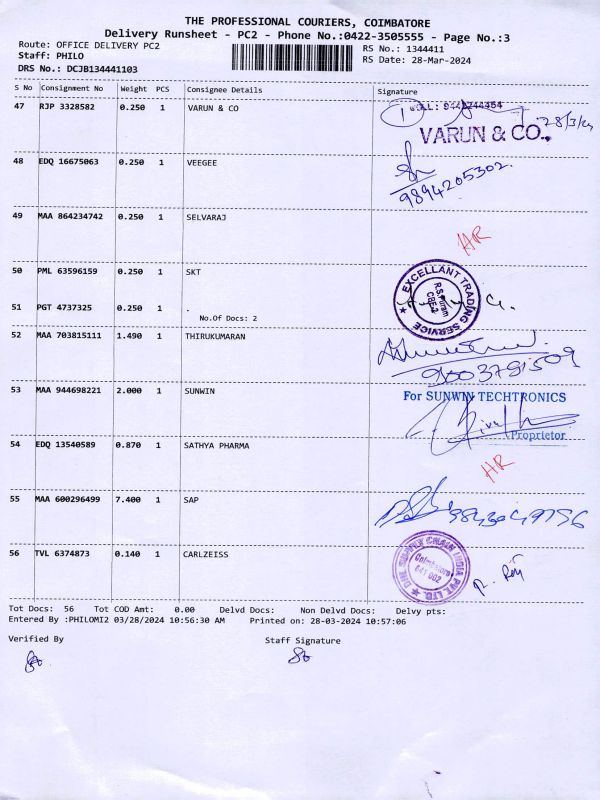 THE PROFESSIONAL COURIERS, COIMBATORE
Delivery Runsheet - PC2 - Phone No.:0422-3505555 - Page No.:3
Route: OFFICE DELIVERY PC2 RS No.: 1344411
Staff: PHILO RS Date: 28-Mar-2024
DRS No.: DCJB134441103
S No Consignment No Weight PCS Consignee Details Signature
47 RJP 3328582 0.250 1 VARUN & CO 1 28/3/24
VARUN & CO.,
48 EDQ 16675063 0.250 1 VEEGEE
9894205302.
49 MAA 864234742 0.250 1 SELVARAJ
HR
50 PML 63596159 0.250 1 SKT
EXCELLANT TRADING SERVICE
R.S. Puram
CBE-2
51 PGT 4737325 0.250 1 .
No.Of Docs: 2
52 MAA 703815111 1.490 1 THIRUKUMARAN
53 MAA 944698221 2.000 1 SUNWIN For SUNWIN TECHTRONICS
Proprietor
54 EDQ 13540589 0.870 1 SATHYA PHARMA
HR
55 MAA 600296499 7.400 1 SAP
56 TVL 6374873 0.140 1 CARLZEISS
SUPPLY CHAIN INDIA PVT. LTD.
Coimbatore
641 002
Tot Docs: 56 Tot COD Amt: 0.00 Delvd Docs: Non Delvd Docs: Delvy pts:
Entered By :PHILOMI2 03/28/2024 10:56:30 AM Printed on: 28-03-2024 10:57:06
Verified By Staff Signature